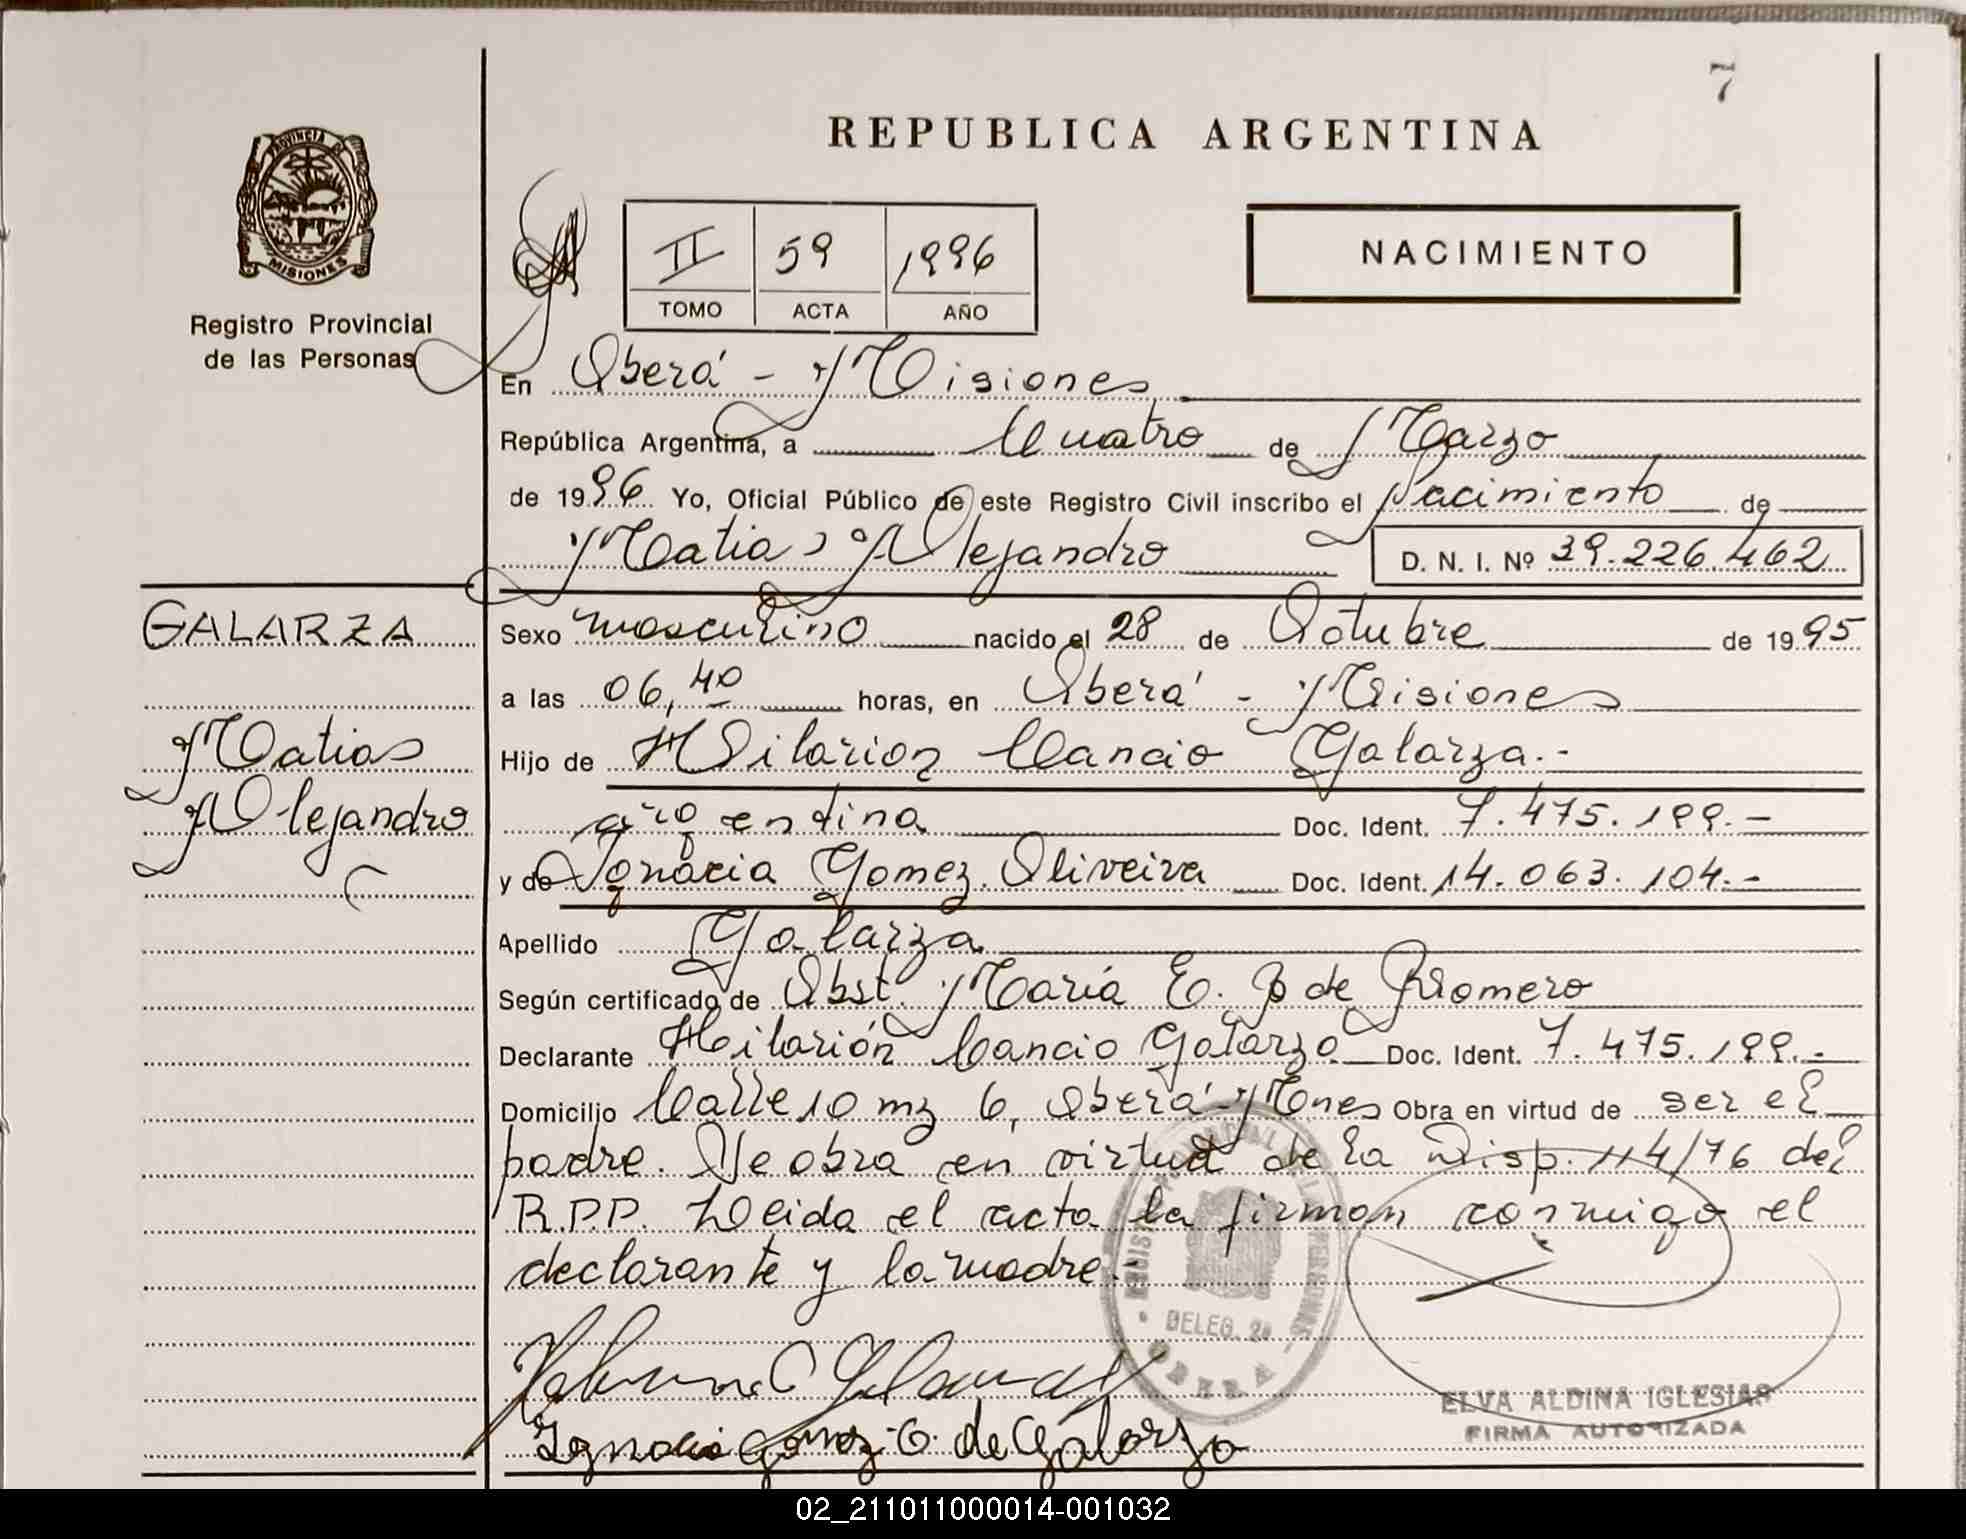 7
REPUBLICA ARGENTINA
PROVINCIA DE
MISIONES
Registro Provincial
de las Personas
II 59 1996
TOMO ACTA AÑO
NACIMIENTO
En Oberá - Misiones
República Argentina, a Cuatro de Marzo
de 1996 Yo, Oficial Público de este Registro Civil inscribo el Nacimiento de
Matias Alejandro D. N. I. Nº 39.226.462
GALARZA
Matias
Alejandro
Sexo masculino nacido el 28 de Octubre de 1995
a las 06,40 horas, en Oberá - Misiones
Hijo de Hilarion Cancio Galarza.-
argentina Doc. Ident. 7.475.199.-
y de Ignacia Gomez Oliveira Doc. Ident. 14.063.104.-
Apellido Galarza
Según certificado de Obst. María E. B de Romero
Declarante Hilarión Cancio Galarza Doc. Ident. 7.475.199.-
Domicilio Calle 10 mz 6, Oberá - Mnes Obra en virtud de ser el
padre. Se obra en virtud de la Disp. 114/76 del
R.P.P. Leida el acta la firman conmigo el
declarante y la madre.-
DELEG. 2a
OBERA
Ignacia Gomez O. de Galarza
ELVA ALDINA IGLESIAS
FIRMA AUTORIZADA
02_211011000014-001032